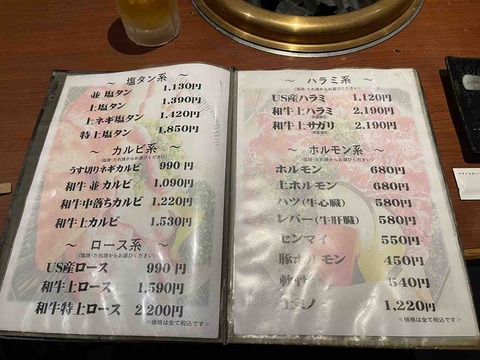 ～ 塩タン系 ～
並 塩タン 1,130円
上塩タン 1,390円
上ネギ塩タン 1,420円
特上塩タン 1,850円
～ カルビ系 ～
(塩焼・たれ焼からお選びください)
うす切りネギカルビ 990円
和牛 並 カルビ 1,090円
和牛中落ちカルビ 1,220円
和牛上カルビ 1,530円
～ ロース系 ～
(塩焼・たれ焼からお選びください)
US産ロース 990円
和牛上ロース 1,590円
和牛特上ロース 2,200円
<価格は全て税込です>
～ ハラミ系 ～
(塩焼・たれ焼からお選びください)
US産ハラミ 1,120円
和牛上ハラミ 2,190円
和牛上サガリ 2,190円
～ ホルモン系 ～
(塩焼・たれ焼からお選びください)
ホルモン 680円
上ホルモン 680円
ハツ(牛心臓) 580円
レバー(牛肝臓) 580円
センマイ 550円
豚ホルモン 450円
軟骨 540円
上ミノ 1,220円
<価格は全て税込です>